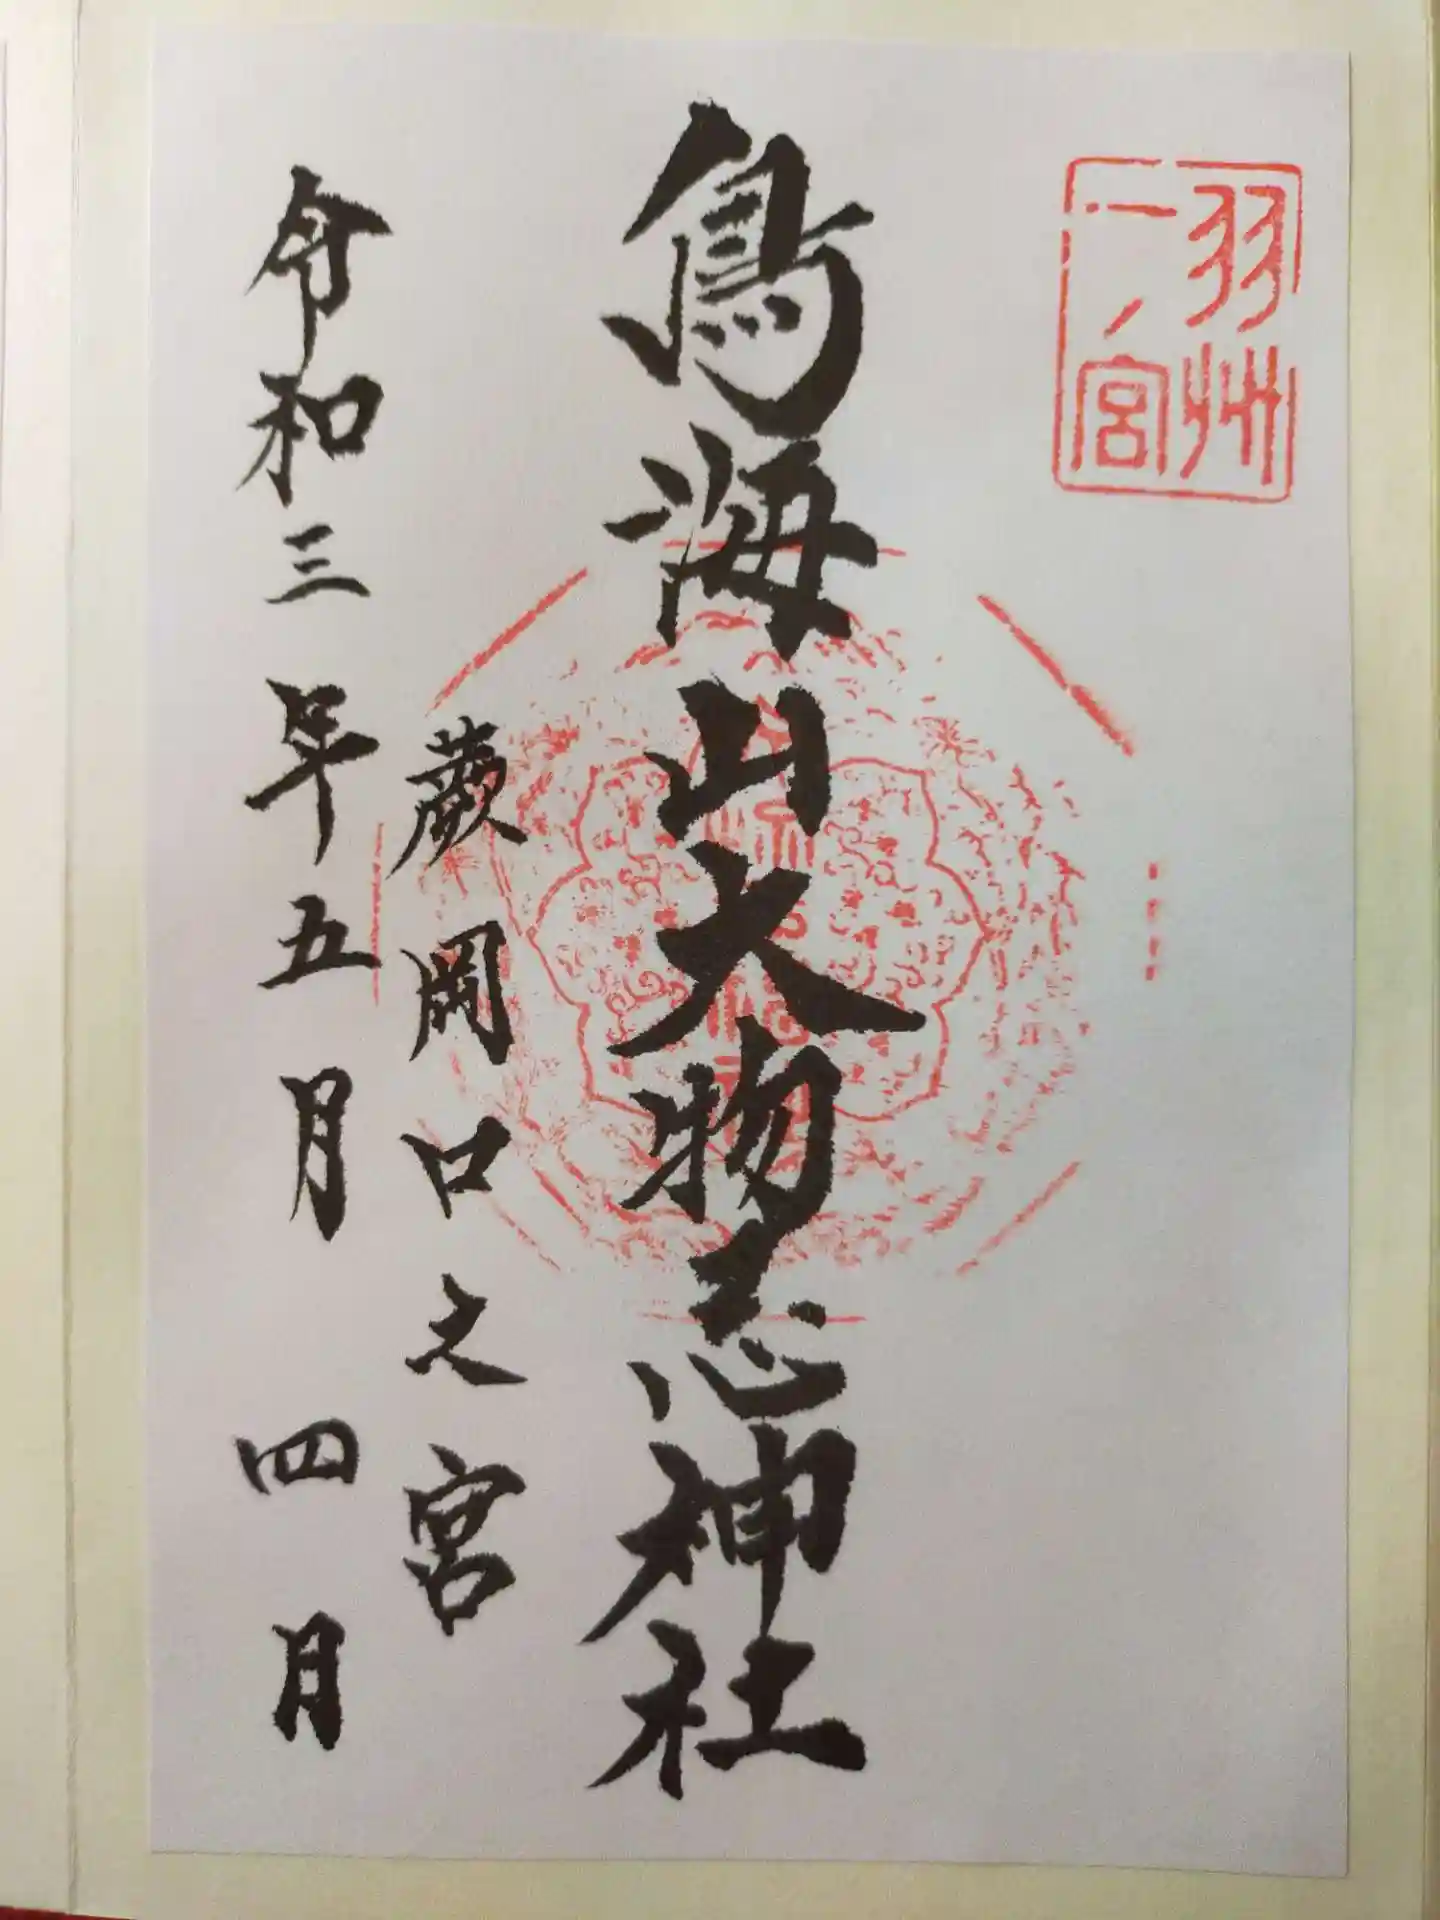 羽州
一ノ宮
鳥海山大物忌神社
蕨岡口之宮
令和三年五月四日